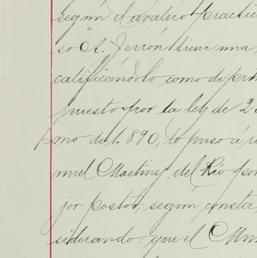 según el avalúo practic
so A. Terrón tiene una
calificándolo como de pert
puesto por la ley de 2
mo del 890, lo puso á p
muel Martinez del Rio por
jor postor, segun consta
siderando: que el Mun